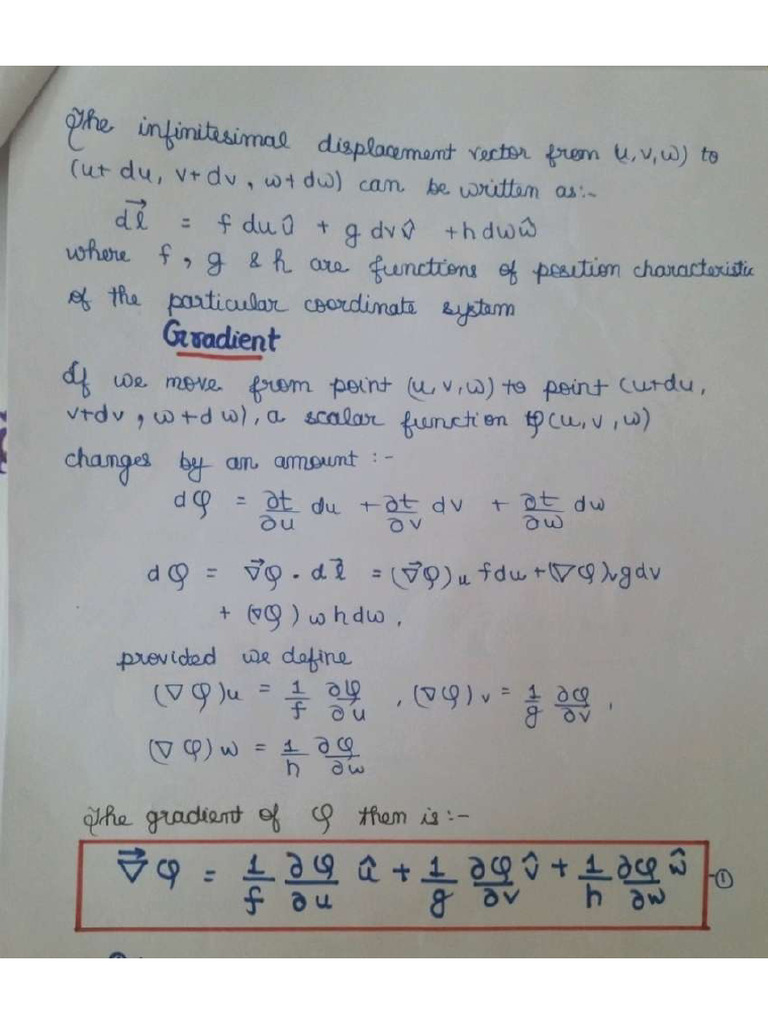 The infinitesimal displacement vector from (u,v,w) to
(u+du, v+dv, w+dw) can be written as:-
d𝑙⃗ = f du û + g dv v̂ + h dw ŵ
where f, g & h are functions of position characteristic
of the particular coordinate system
Gradient
If we move from point (u,v,w) to point (u+du,
v+dv, w+dw), a scalar function φ(u,v,w)
changes by an amount :-
dφ = ∂t/∂u du + ∂t/∂v dv + ∂t/∂w dw
dφ = ∇⃗φ . d𝑙⃗ = (∇⃗φ)u fdu + (∇φ)v gdv
+ (∇φ)w hdw,
provided we define
(∇φ)u = 1/f ∂φ/∂u , (∇φ)v = 1/g ∂φ/∂v ,
(∇φ)w = 1/h ∂φ/∂w
The gradient of φ then is:-
∇⃗φ = 1/f ∂φ/∂u û + 1/g ∂φ/∂v v̂ + 1/h ∂φ/∂w ŵ -①